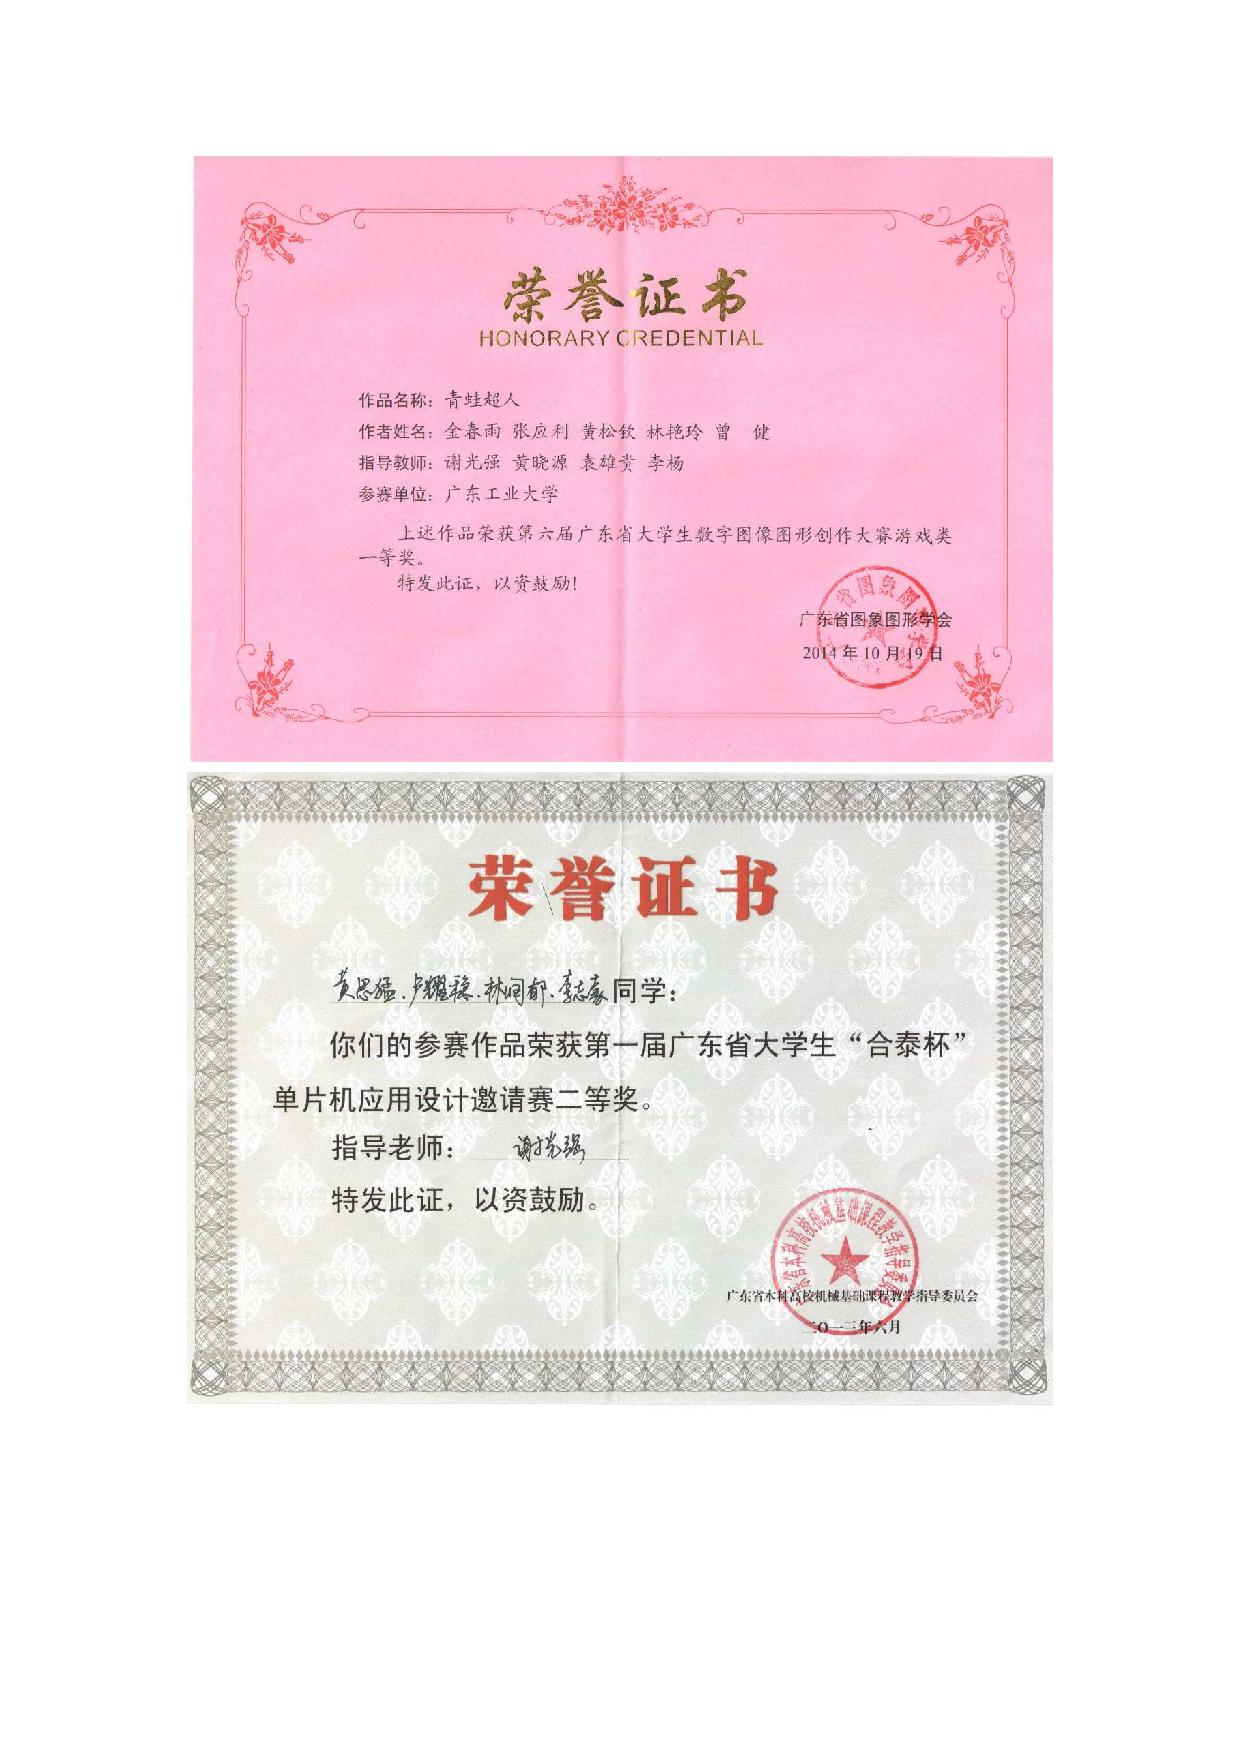 荣誉证书
HONORARY CREDENTIAL
作品名称：青蛙超人
作者姓名：金春雨 张应利 黄松钦 林艳玲 曾 健
指导教师：谢光强 黄晓源 袁雄贵 李杨
参赛单位：广东工业大学
上述作品荣获第六届广东省大学生数字图像图形创作大赛游戏类
一等奖。
特发此证，以资鼓励！
广东省图象图形学会
2014 年 10 月 19 日
荣誉证书
黄思猛、卢耀稳、林润郁、李志豪同学：
你们的参赛作品荣获第一届广东省大学生“合泰杯”
单片机应用设计邀请赛二等奖。
指导老师：谢光强
特发此证，以资鼓励。
广东省本科高校机械基础课程教学指导委员会
广东省本科高校机械基础课程教学指导委员会
二〇一三年六月